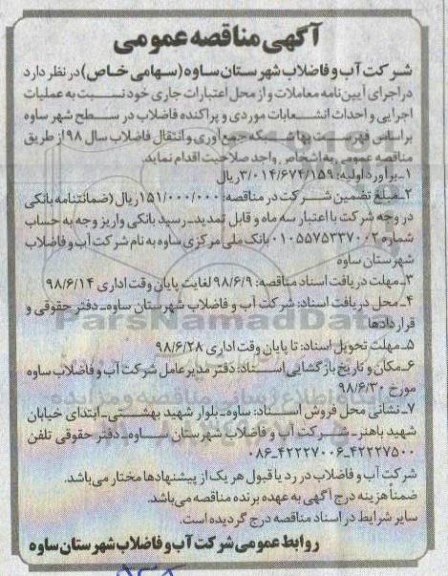 آگهی مناقصه عمومی
شرکت آب و فاضلاب شهرستان ساوه (سهامی خاص) در نظر دارد
در اجرای آیین نامه معاملات و از محل اعتبارات جاری خود نسبت به عملیات
اجرایی و احداث انشعابات موردی و پراکنده فاضلاب در سطح شهر ساوه
براساس فهرست بهاء شبکه جمع آوری و انتقال فاضلاب سال ۹۸ از طریق
مناقصه عمومی به اشخاص واجد صلاحیت اقدام نماید.
۱-برآورد اولیه: ۳/۰۱۴/۶۷۴/۱۵۹ریال
۲-مبلغ تضمین شرکت در مناقصه: ۱۵۱/۰۰۰/۰۰۰ریال (ضمانتنامه بانکی
در وجه شرکت با اعتبار سه ماه و قابل تمدید-رسید بانکی واریز وجه به حساب
شماره ۰۱۰۵۵۷۵۳۳۷۰۰۲ بانک ملی مرکزی ساوه به نام شرکت آب و فاضلاب
شهرستان ساوه
۳-مهلت دریافت اسناد مناقصه: ۹۸/۶/۹ لغایت پایان وقت اداری ۹۸/۶/۱۴
۴-محل دریافت اسناد: شرکت آب و فاضلاب شهرستان ساوه-دفتر حقوقی و
قراردادها
ParsNamadData
۵-مهلت تحویل اسناد: تا پایان وقت اداری ۹۸/۶/۲۸
۶-مکان و تاریخ بازگشایی اسناد: دفتر مدیرعامل شرکت آب و فاضلاب ساوه
مورخ ۹۸/۶/۳۰
۷-نشانی محل فروش اسناد: ساوه-بلوار شهید بهشتی-ابتدای خیابان
شهید باهنر-شرکت آب و فاضلاب شهرستان ساوه-دفتر حقوقی تلفن
۰۸۶-۴۲۲۲۷۰۰۶-۴۲۲۲۷۵۰۰
شرکت آب و فاضلاب در رد یا قبول هر یک از پیشنهادها مختار می‌باشد.
ضمناً هزینه درج آگهی به عهده برنده مناقصه می‌باشد.
سایر شرایط در اسناد مناقصه درج گردیده است.
روابط عمومی شرکت آب و فاضلاب شهرستان ساوه